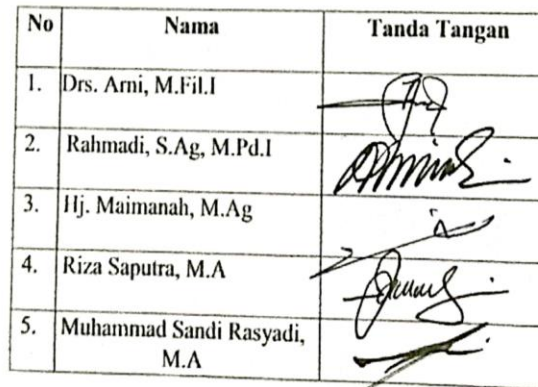 No Nama Tanda Tangan
1. Drs. Arni, M.Fil.I
2. Rahmadi, S.Ag, M.Pd.I
3. Hj. Maimanah, M.Ag
4. Riza Saputra, M.A
5. Muhammad Sandi Rasyadi,
M.A